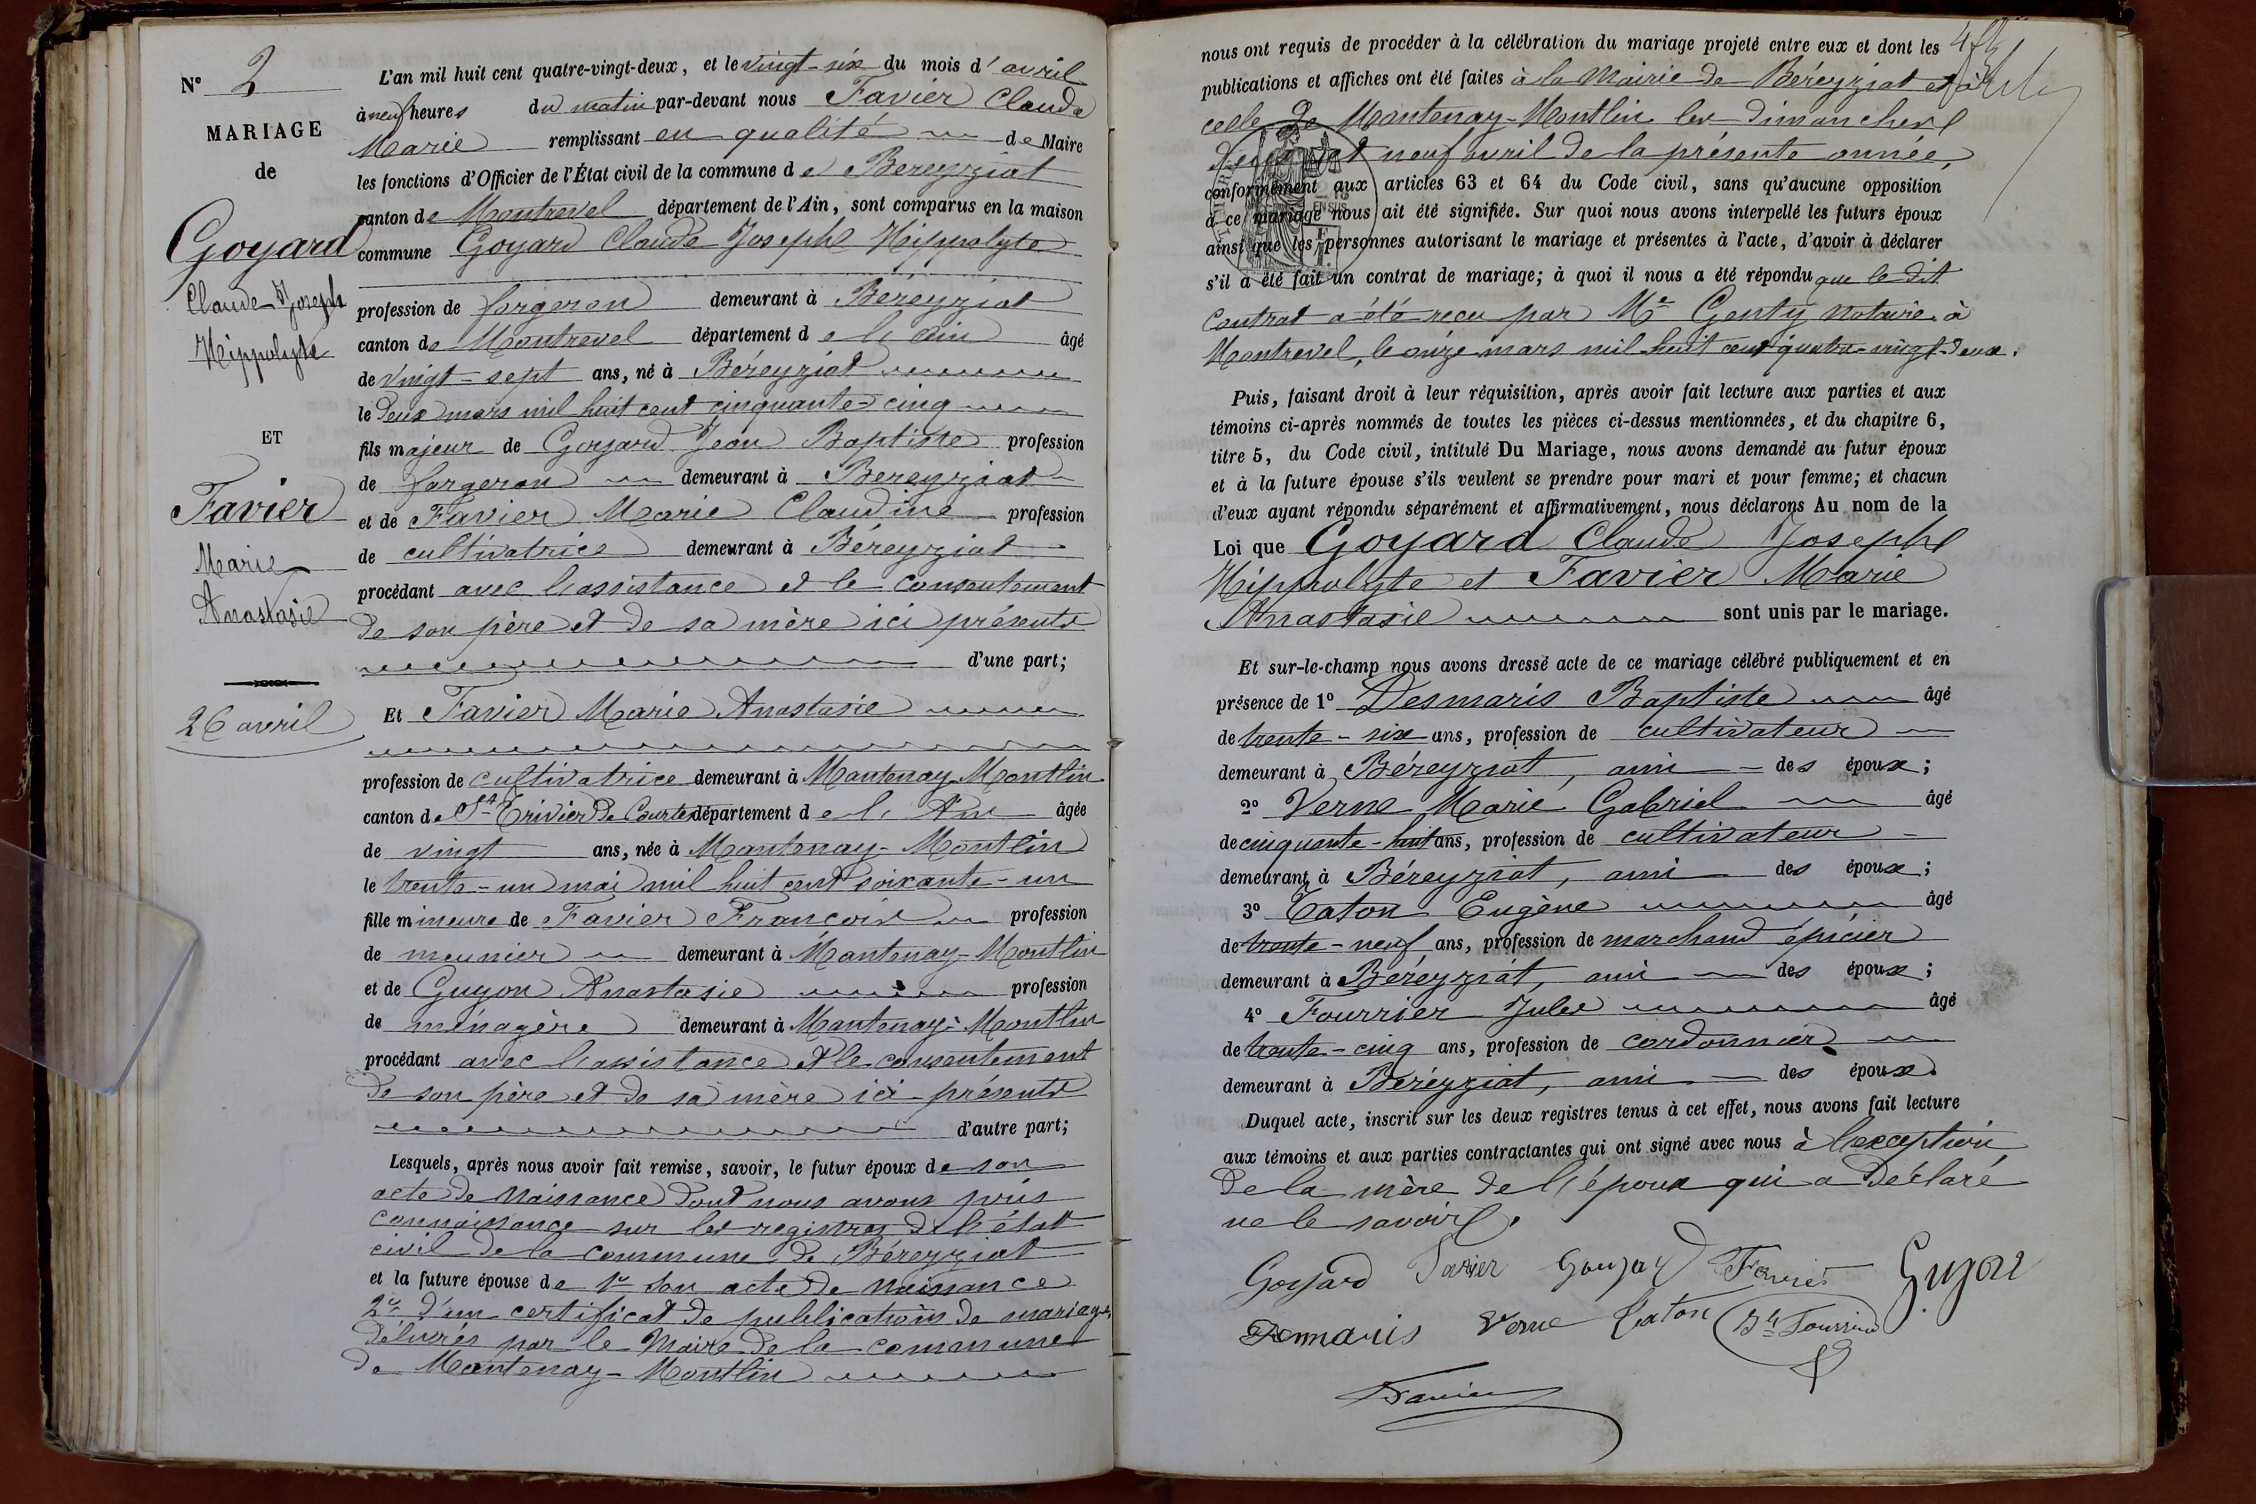 N° 2
MARIAGE
de
Goyard
Claude Joseph
Hippolyte
ET
Favier
Marie
Anastasie
26 avril
L'an mil huit cent quatre-vingt-deux, et le vingt-six du mois d'avril
à neuf heures du matin par-devant nous Favier Claude
Marie remplissant en qualité de Maire
les fonctions d'Officier de l'État civil de la commune de Béreyziat
canton de Montrevel département de l'Ain, sont comparus en la maison
commune Goyard Claude Joseph Hippolyte
profession de forgeron demeurant à Béreyziat
canton de Montrevel département de l'ain âgé
de vingt-sept ans, né à Béreyziat
le deux mars mil huit cent cinquante-cinq
fils majeur de Goyard Jean Baptiste profession
de forgeron demeurant à Béreyziat
et de Favier Marie Claudine profession
de cultivatrice demeurant à Béreyziat
procédant avec l'assistance et le consentement
de son père et de sa mère ici présents
d'une part;
Et Favier Marie Anastasie
profession de cultivatrice demeurant à Mantenay-Montlin
canton de St Trivier de Courtes département de l'Ain âgée
de vingt ans, née à Mantenay-Montlin
le trente-un mai mil huit cent soixante-un
fille mineure de Favier François profession
de meunier demeurant à Mantenay-Montlin
et de Guyon Anastasie profession
de ménagère demeurant à Mantenay-Montlin
procédant avec l'assistance et le consentement
de son père et de sa mère ici présents
d'autre part;
Lesquels, après nous avoir fait remise, savoir, le futur époux de son
acte de naissance dont nous avons pris
connaissance sur les registres de l'état
civil de la commune de Béreyziat
et la future épouse de 1° son acte de naissance
2° d'un certificat de publications de mariage
délivrés par le Maire de la commune
de Mantenay-Montlin
nous ont requis de procéder à la célébration du mariage projeté entre eux et dont les
publications et affiches ont été faites à la Mairie de Béreyziat et à
celle de Mantenay-Montlin les dimanches
deux et neuf avril de la présente année,
conformément aux articles 63 et 64 du Code civil, sans qu'aucune opposition
à ce mariage nous ait été signifiée. Sur quoi nous avons interpellé les futurs époux
ainsi que les personnes autorisant le mariage et présentes à l'acte, d'avoir à déclarer
s'il a été fait un contrat de mariage; à quoi il nous a été répondu que le dit
contrat a été reçu par Me Genty notaire à
Montrevel, le onze mars mil huit cent quatre-vingt-deux.
Puis, faisant droit à leur réquisition, après avoir fait lecture aux parties et aux
témoins ci-après nommés de toutes les pièces ci-dessus mentionnées, et du chapitre 6,
titre 5, du Code civil, intitulé Du Mariage, nous avons demandé au futur époux
et à la future épouse s'ils veulent se prendre pour mari et pour femme; et chacun
d'eux ayant répondu séparément et affirmativement, nous déclarons Au nom de la
Loi que Goyard Claude Joseph
Hippolyte et Favier Marie
Anastasie sont unis par le mariage.
Et sur-le-champ nous avons dressé acte de ce mariage célébré publiquement et en
présence de 1° Desmaris Baptiste âgé
de trente-six ans, profession de cultivateur
demeurant à Béreyziat, ami des époux;
2° Verne Marie Gabriel âgé
de cinquante-huit ans, profession de cultivateur
demeurant à Béreyziat, ami des époux;
3° Caton Eugène âgé
de trente-neuf ans, profession de marchand épicier
demeurant à Béreyziat, ami des époux;
4° Fourrier Jules âgé
de trente-cinq ans, profession de cordonnier
demeurant à Béreyziat, ami des époux
Duquel acte, inscrit sur les deux registres tenus à cet effet, nous avons fait lecture
aux témoins et aux parties contractantes qui ont signé avec nous à l'exception
de la mère de l'époux qui a déclaré
ne le savoir.
Goyard Favier Goyard Favier Guyon
Demaris Verne Caton
Favier